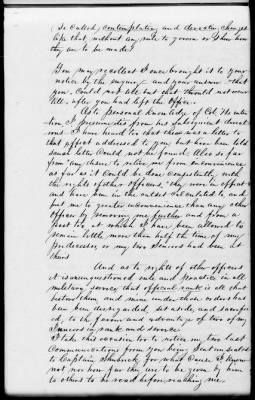 (so called) contemplating and desires changes
like that, without any rule to govern or when how
they are to be made?
You may recollect I once brought it to your
notice by the enquiry and your answer that
you could not tell but that should not occur
till after you had left the Office.
As to personal knowledge of Col.
I presume died from his subsequent
I have heard too that there was a letter to
that effect addressed to you but have been told
such letter could not be found. Also so far
from any desire to relieve me from inconvenience
as far as it could be done compatibly with
the rights of other officers, they were in effect
and have been in the orders calculated to and
put me to greater inconvenience than any other
officer by removing me further and from a
post too at which I have been allowed to
remain little more than half the time of my
predecessor or my two Juniors had been at
theirs
And as to rights of other officers
it is unquestioned rule and practice in all
military service that official rank is all that
between them and mine under those orders has
been disregarded, set aside, and sacrificed,
to the favour and advantage of two of my
Juniors in rank and service
I take this occasion too to notice my two last
Communications from you being first unsealed
to Captain Shubrick, for what cause I know
not nor how they are to be given by him
to others to be read before reaching me.